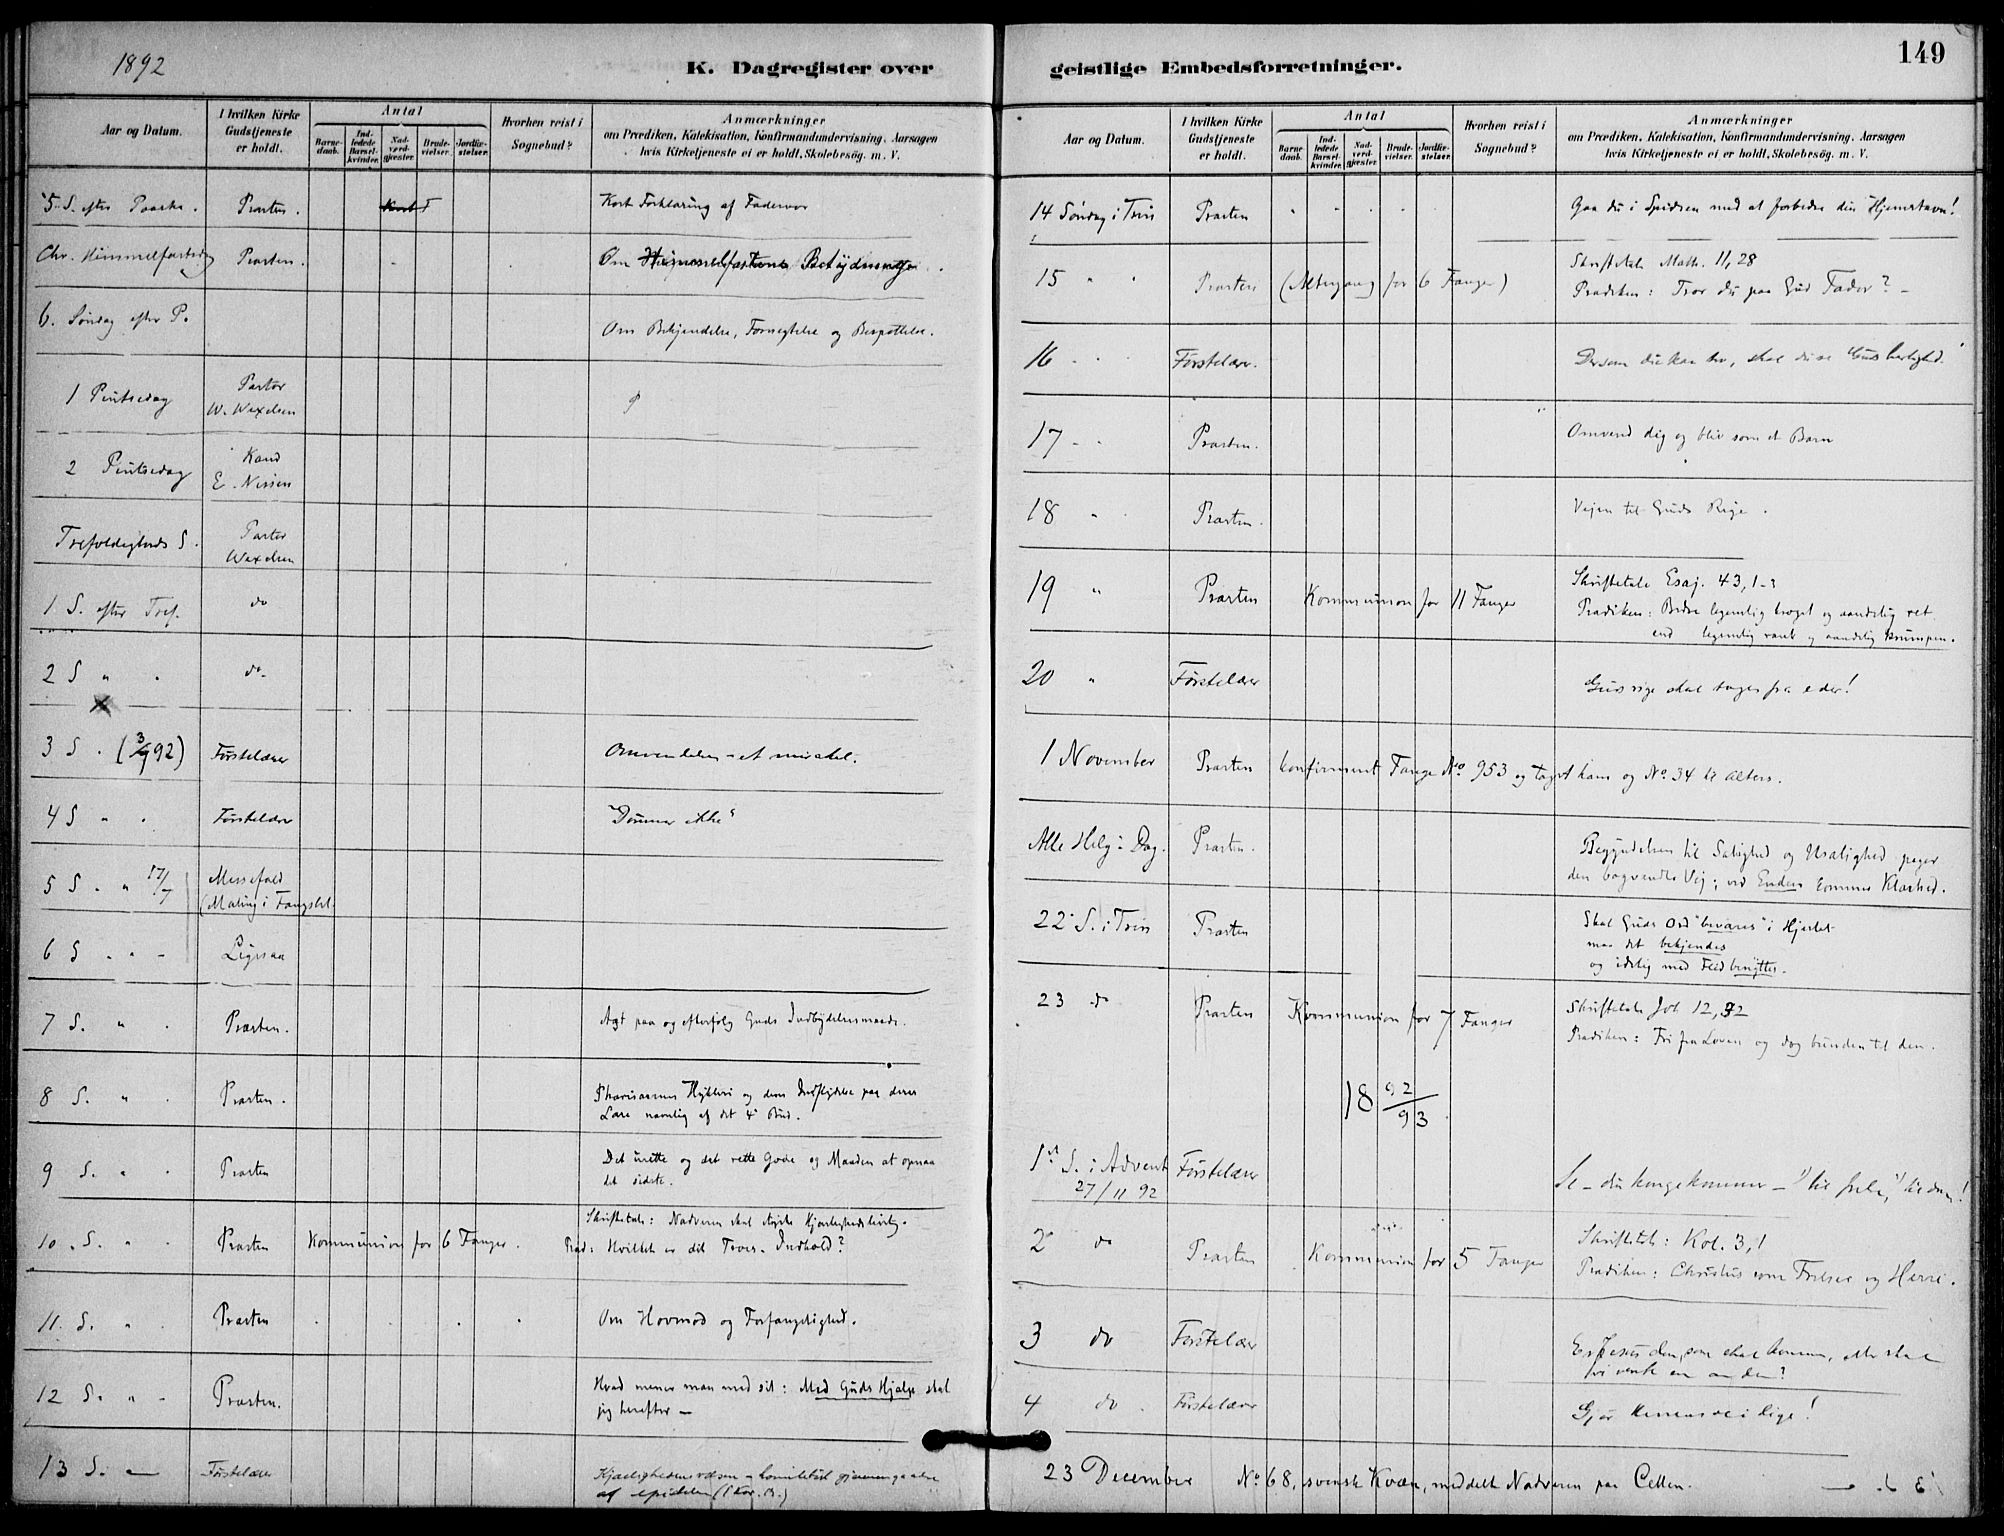 1892
K. Dagregister over
Aar og Datum.
I hvilken Kirke Gudstjeneste er holdt.
Antal
Barnedaab.
Indledede Barselkvinder.
Nadverdgjester.
Brudevielser.
Jordfæstelser.
Hvorhen reist i Sognebud?
Anmærkninger
om Prædiken, Katekisation, Konfirmandundervisning. Aarsagen
hvis Kirketjeneste ei er holdt, Skolebesøg. m. V.
5. S. efter Paaske. Præsten. Kort Forklaring af Fadervor
Chr. Himmelfartsdag Præsten. Om Himmelfartens Betydning
6. Søndag efter P. Om Bekjendelse, Fornegtelse og Bespottelse.
1 Pintsedag Pastor W. Wexelsen
2 Pintsedag Kand E. Nissen
Trefoldigheds S. Pastor Wexelsen
1 S. efter Tref. do
2 S " do
3 S. (3/7 92) Førstelærer Omvendelsen – et mirakel.
4 S " Førstelærer "Dømmer ikke"
5 S. " 17/7 Messefald (Maling i Fængslet.
6 S " " Ligesaa
7 S. " Præsten. Agt paa og efterfølg Guds Indbydelsesmaade.
8 S. " Præsten. Pharisæernes Hykleri og dens Indflydelse paa deres
Lære navnlig af det 4 Bud.
9 S. " Præsten Det urette og det rette Gode og Maaden at opnaa
det sidste.
10. S. " Præsten Kommunion for 6 Fanger. Skriftetale: Nadveren skal styrke
Præd: Hvilket er dit Troes-Indhold?
11. S. " Præsten Om Hovmod og Forfængelighed.
12 S. " Præsten. Hvad mener man med sit: Med Guds Hjælp skal
jeg herefter —
13 S. — Førstelærer Kjærlighedens væsen
(1 Kor. 13.)
geistlige Embedsforretninger.
149
Aar og Datum.
I hvilken Kirke Gudstjeneste er holdt.
Antal
Barnedaab.
Indledede Barselkvinder.
Nadverdgjester.
Brudevielser.
Jordfæstelser.
Hvorhen reist i Sognebud?
Anmærkninger
om Prædiken, Katekisation, Konfirmandundervisning. Aarsagen
hvis Kirketjeneste ei er holdt, Skolebesøg. m. V.
14 Søndag i Trin Præsten Gaa du i Spidsen med at forbedre din Hjemstavn!
15 " " Præsten (Altergang for 6 Fanger) Skriftetale Math. 11, 28
Prædiken: Tror du paa Gud Fader? –
16 Førstelærer. Dersom du kan tro, skal du se Guds herlighed.
17 Præsten. Omvend dig og bliv som et Barn
18 " Præsten. Vejen til Guds Rige.
19 " Præsten Kommunion for 11 Fanger Skriftetale Esaj. 43, 1-3
Prædiken: Bedre legemlig kroget og aandelig ret
end legemlig rank og aandelig krumpen.
20 " Førstelærer Guds rige skal tages fra eder!
1 November Præsten konfirmeret Fange No 953 og taget ham og No 34 til alters.
Alle Helg. Dag. Præsten. Begyndelsen til Salighed og Usalighed peger
den bagvendte Vej; ved Enden kommer Klarhed.
22 S. i Trin Præsten Skal Guds Ord "bevares" i Hjertet
maa det bekjendes
og idelig med Flid benyttes.
23 do Præsten Kommunion for 7 Fanger Skriftetale
Prædiken: Fri fra Loven og dog bunden til den.
18 92/93
1ste S. i Advent 27/11 92 Førstelærer Se – din konge kommer – "til frelse,
2 do Præsten Kommunion for 5 Fanger Skriftetale: Kol. 3, 1
Prædiken: Christus som Frelser og Herre.
3 do Førstelærer Er Jesus den, som skal komme, eller skal
vi vente en anden?
4 do Førstelærer Gjør Herrens vei lige!
23 December No 68, svensk Kvæn, meddelt Nadveren paa Cellen.